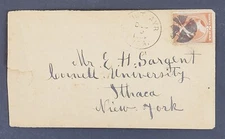 Mr. E. H. Sargent
Cornell University
Ithaca
New York